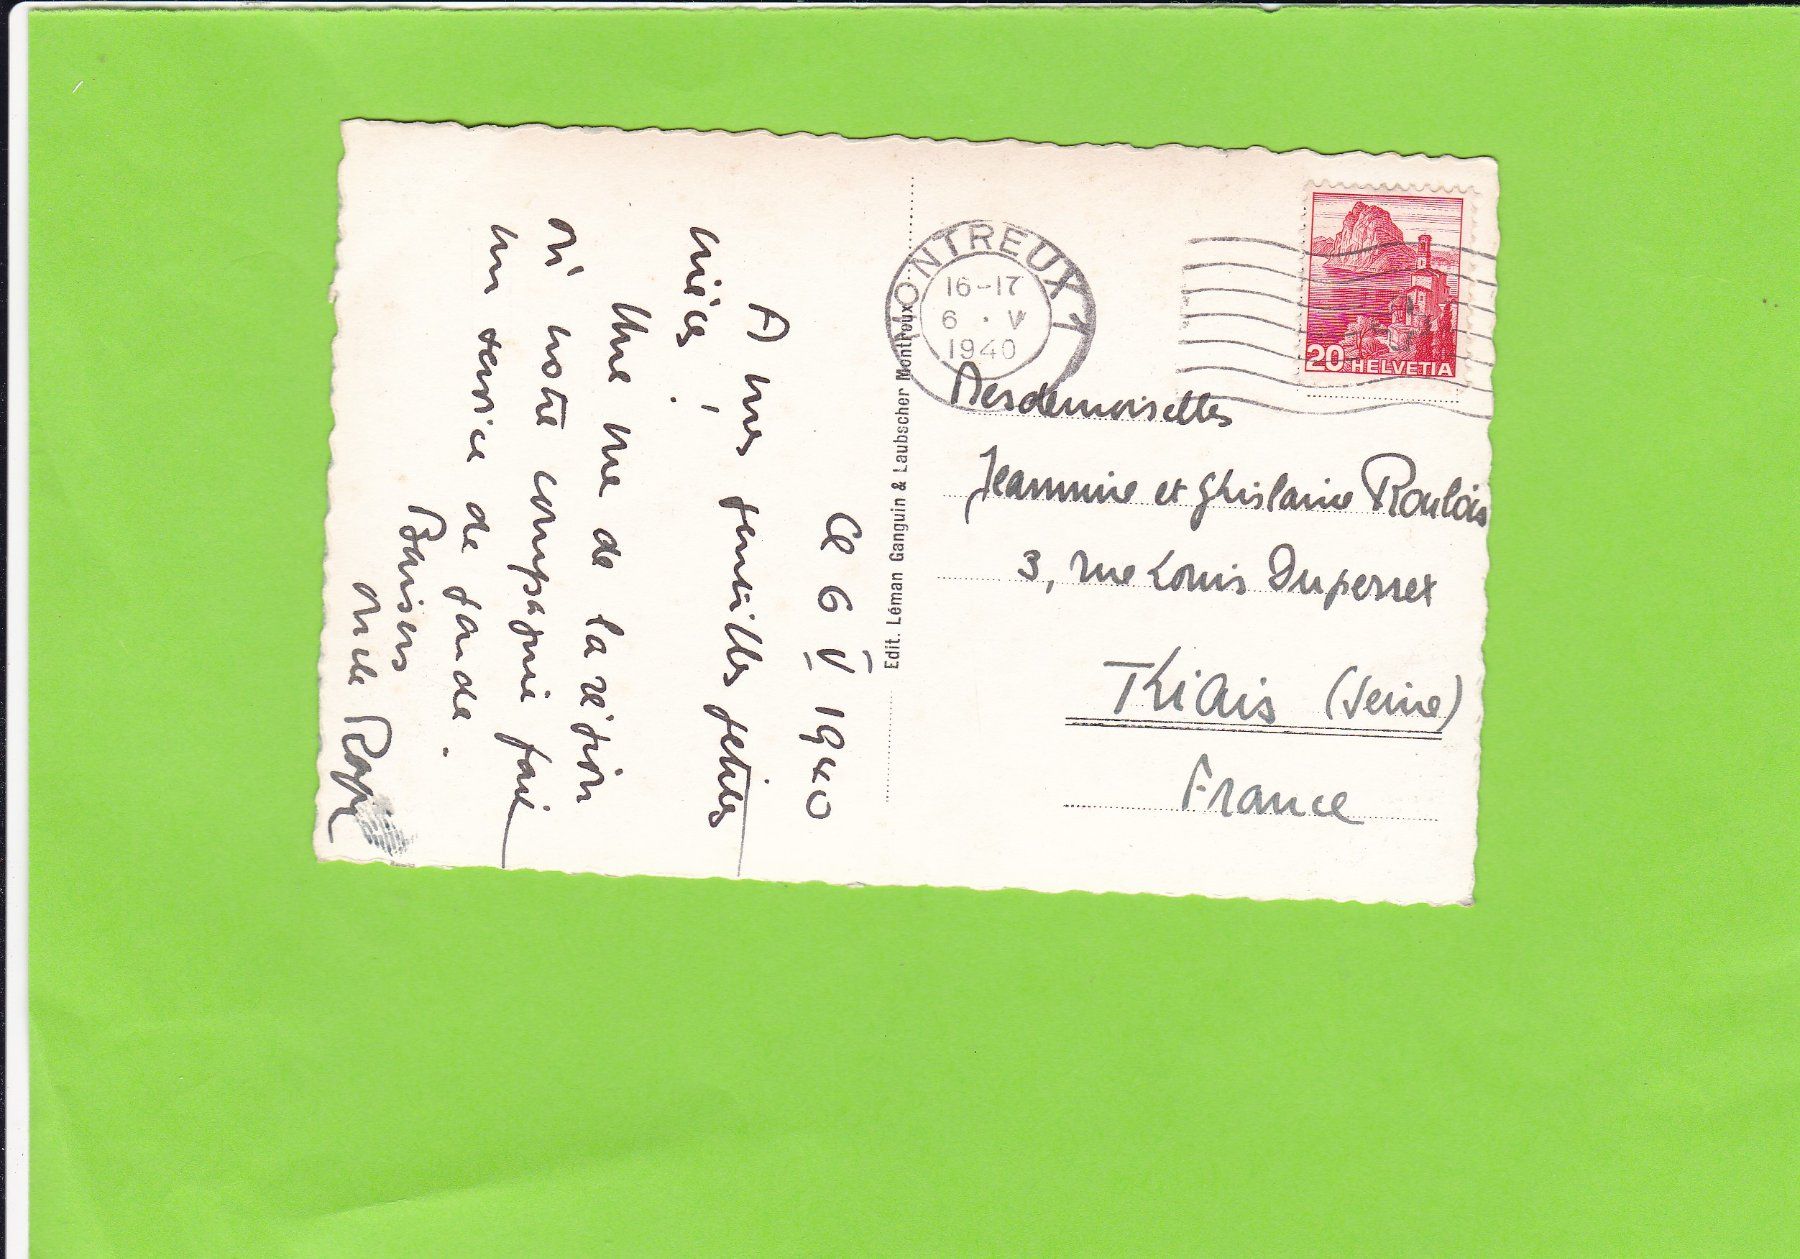 Ce 6 V 1940
A mes gentilles petites
nièces !
Une vue de la région
où notre compagnie fait
un service de garde.
Baisers
Oncle Roger
Edit. Léman Ganguin & Laubscher Montreux
MONTREUX 1
16-17
6 · V
1940
20 HELVETIA
Mesdemoiselles
Jeannine et Ghislaine Roulois
3, rue Louis Duperrex
Thiais (Seine)
France